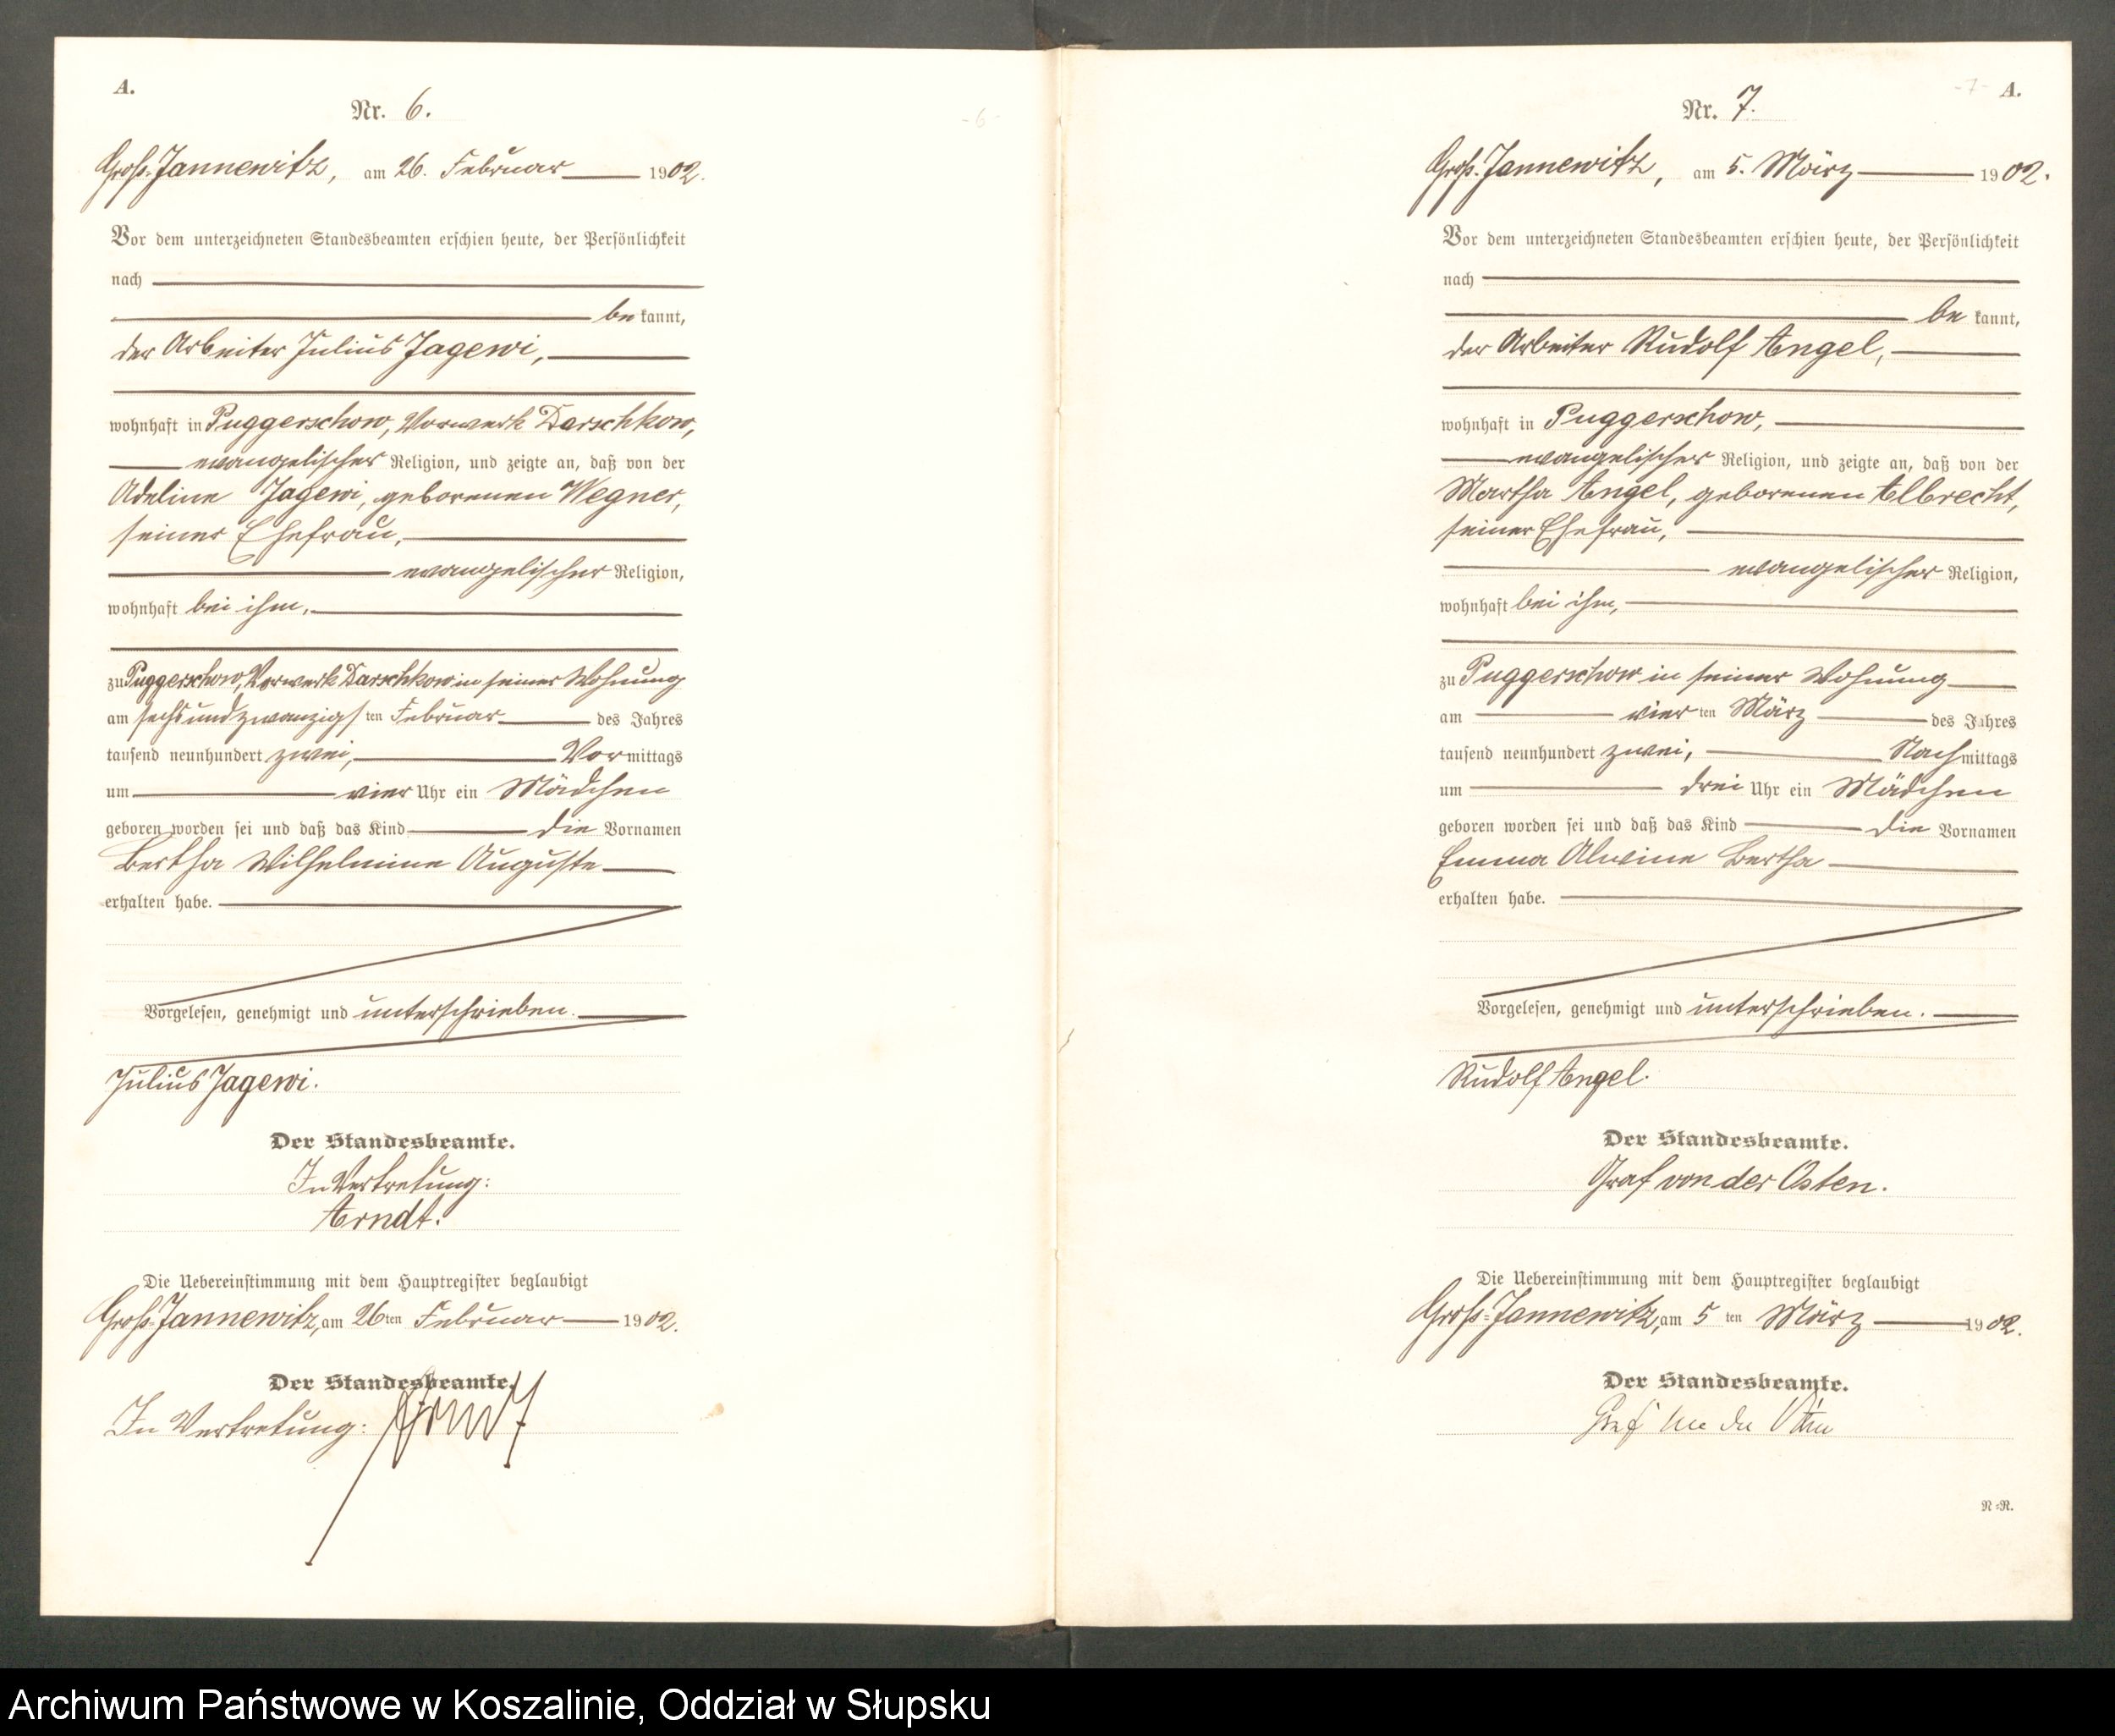 A.
Nr. 6.
-6-
Groß-Jannewitz, am 26. Februar 1902.
Vor dem unterzeichneten Standesbeamten erschien heute, der Persönlichkeit
nach
bekannt,
der Arbeiter Julius Jagewi,
wohnhaft in Puggerschow, Vorwerk Darschkow,
evangelischer Religion, und zeigte an, daß von der
Adeline Jagewi, geborenen Wegner,
seiner Ehefrau,
evangelischer Religion,
wohnhaft bei ihm,
zu Puggerschow, Vorwerk Darschkow in seiner Wohnung
am sechsundzwanzigsten Februar des Jahres
tausend neunhundert zwei, Vormittags
um vier Uhr ein Mädchen
geboren worden sei und daß das Kind die Vornamen
Bertha Wilhelmine Auguste
erhalten habe.
Vorgelesen, genehmigt und unterschrieben.
Julius Jagewi.
Der Standesbeamte.
In Vertretung:
Arndt.
Die Uebereinstimmung mit dem Hauptregister beglaubigt
Groß-Jannewitz, am 26ten Februar 1902.
Der Standesbeamte.
In Vertretung: Arndt
-7- A.
Nr. 7.
Groß-Jannewitz, am 5. März 1902.
Vor dem unterzeichneten Standesbeamten erschien heute, der Persönlichkeit
nach
bekannt,
der Arbeiter Rudolf Angel,
wohnhaft in Puggerschow,
evangelischer Religion, und zeigte an, daß von der
Martha Angel, geborenen Albrecht,
seiner Ehefrau,
evangelischer Religion,
wohnhaft bei ihm,
zu Puggerschow in seiner Wohnung
am vierten März des Jahres
tausend neunhundert zwei, Nachmittags
um drei Uhr ein Mädchen
geboren worden sei und daß das Kind die Vornamen
Emma Alwine Bertha
erhalten habe.
Vorgelesen, genehmigt und unterschrieben.
Rudolf Angel.
Der Standesbeamte.
Graf von der Osten.
Die Uebereinstimmung mit dem Hauptregister beglaubigt
Groß-Jannewitz, am 5ten März 1902.
Der Standesbeamte.
Graf von der Osten
N=R.
Archiwum Państwowe w Koszalinie, Oddział w Słupsku